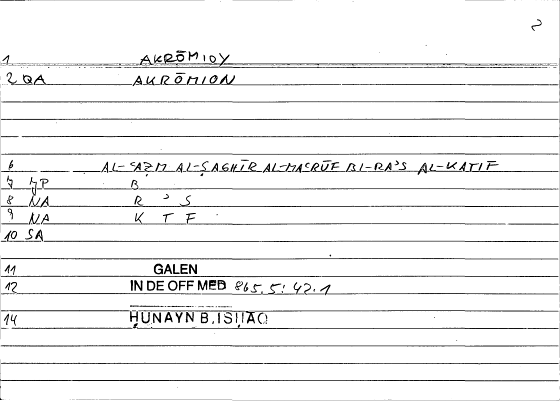 2
1 AKRŌMIOY
2 QA AKRŌMION
6 AL-ʿAẒM AL-ṢAĠHĪR AL-MAʿRŪF BI-RAʾS AL-KATIF
7 JP B
8 NA R ʾ S
9 NA K T F
10 SA
11 GALEN
12 IN DE OFF MED 865.5; 42.1
14 ḤUNAYN B. ISḤĀQ